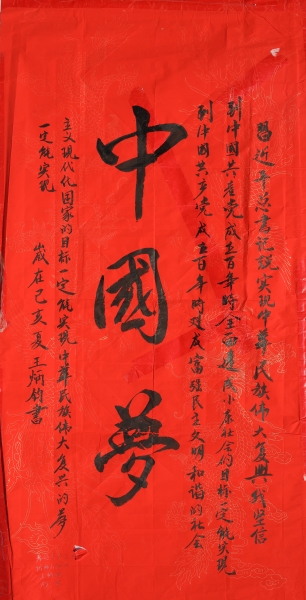 習近平总書记說实现中華民族伟大复興我坚信
到中國共產党成立百年時全面建成小康社会的目标一定能实现
到中國共产党成立百年時建成富强民主文明和谐的社会
中國夢
主义現代化国家的目标一定能实现中華民族伟大复兴的梦
一定能实現
歲在己亥夏王炳钧書